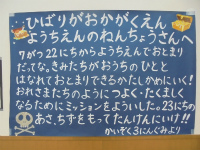 ひばりがおかがくえん
ようちえんのねんちょうさんへ
7がつ22にちからようちえんでおとまり
だってな。きみたちがおうちのひとと
はなれておとまりできるかたしかめにいく!
おれさまたちのようにつよく・たくましく
なるためにミッションをよういした。23にちの
あさ、ちずをもってたんけんにいけ!!
かいぞく3にんぐみより